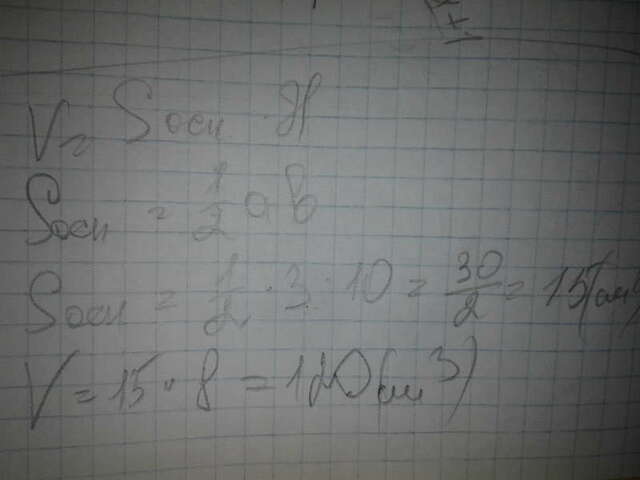 V = Sосн · H
Sосн = 1/2 ab
Sосн = 1/2 · 3 · 10 = 30/2 = 15 (см²
V = 15 · 8 = 120 (см³)